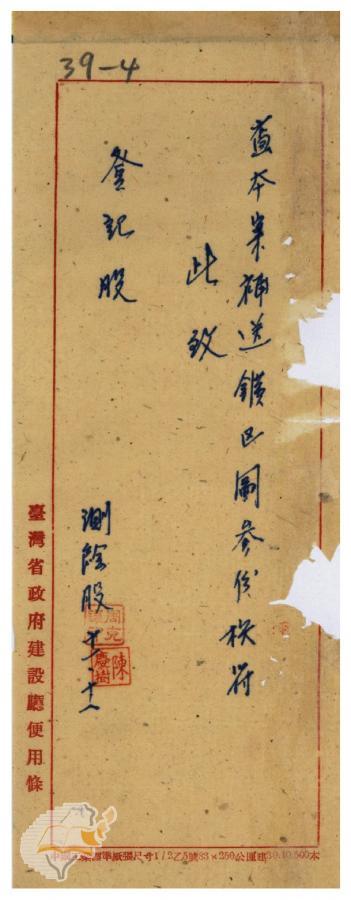 39-4
查本案補送鑛區圖參份核符
此致
登記股
測繪股
陳慶樹
臺灣省政府建設廳便用條